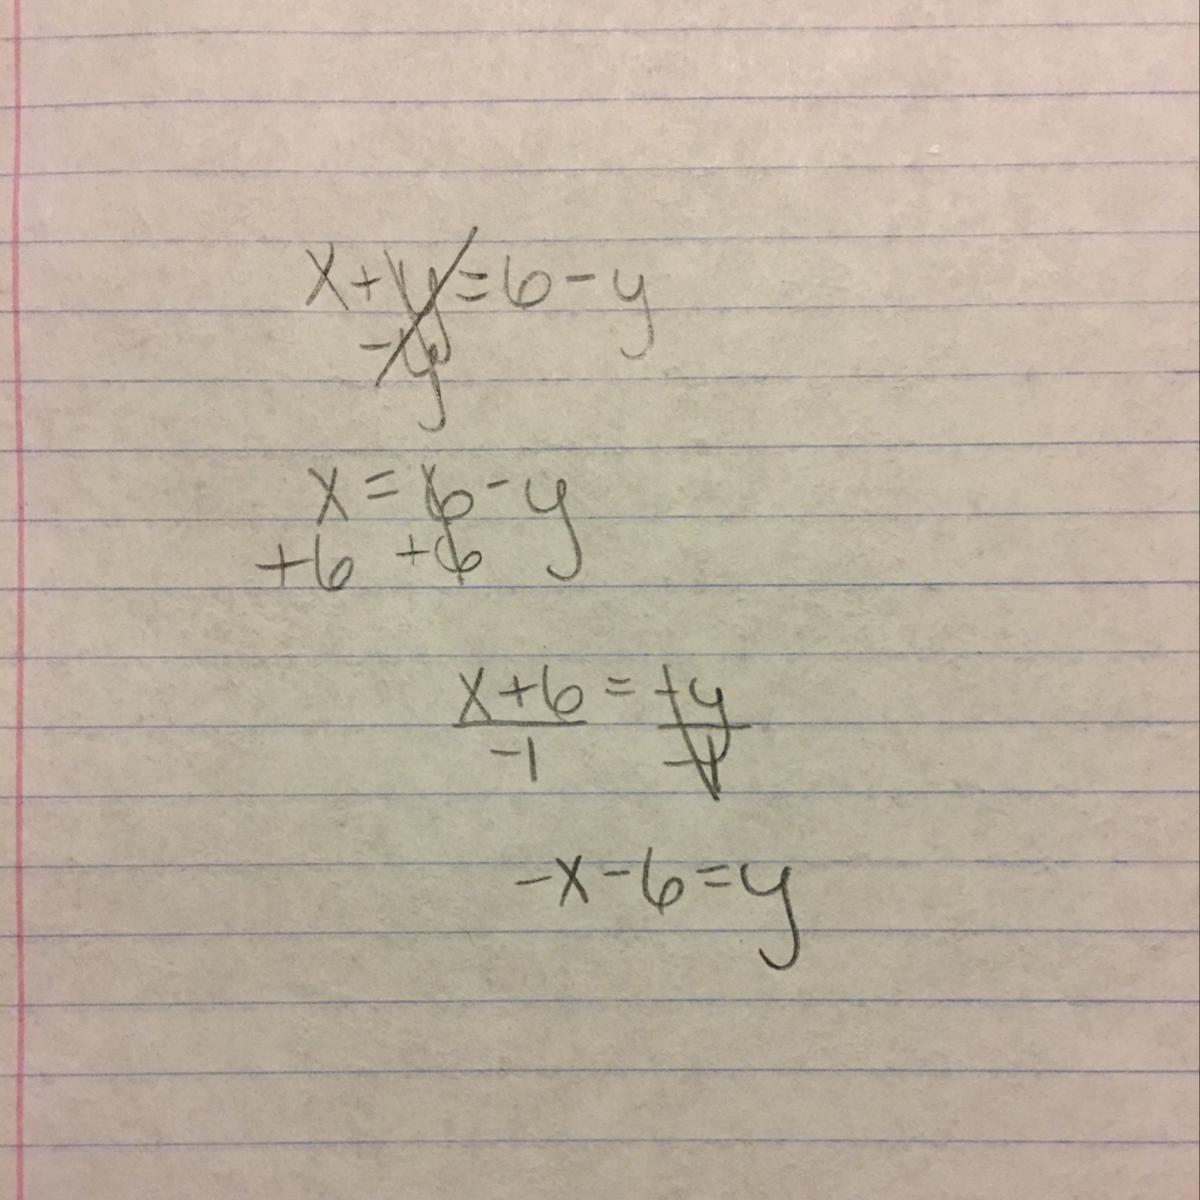 x+y=6-y
-y
x=6-y
+6 +6
x+6=-y
-1 -1
-x-6=y